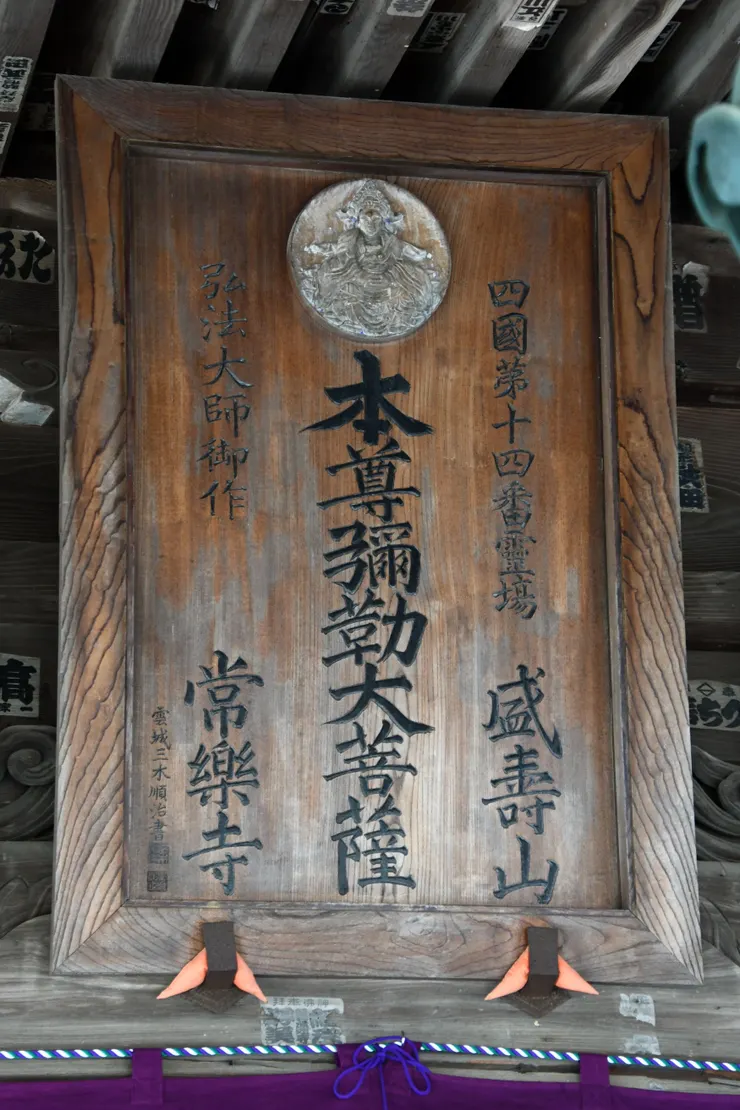 四國第十四番靈場
盛壽山
本尊彌勒大菩薩
弘法大師御作
常樂寺
雲城三木順治書